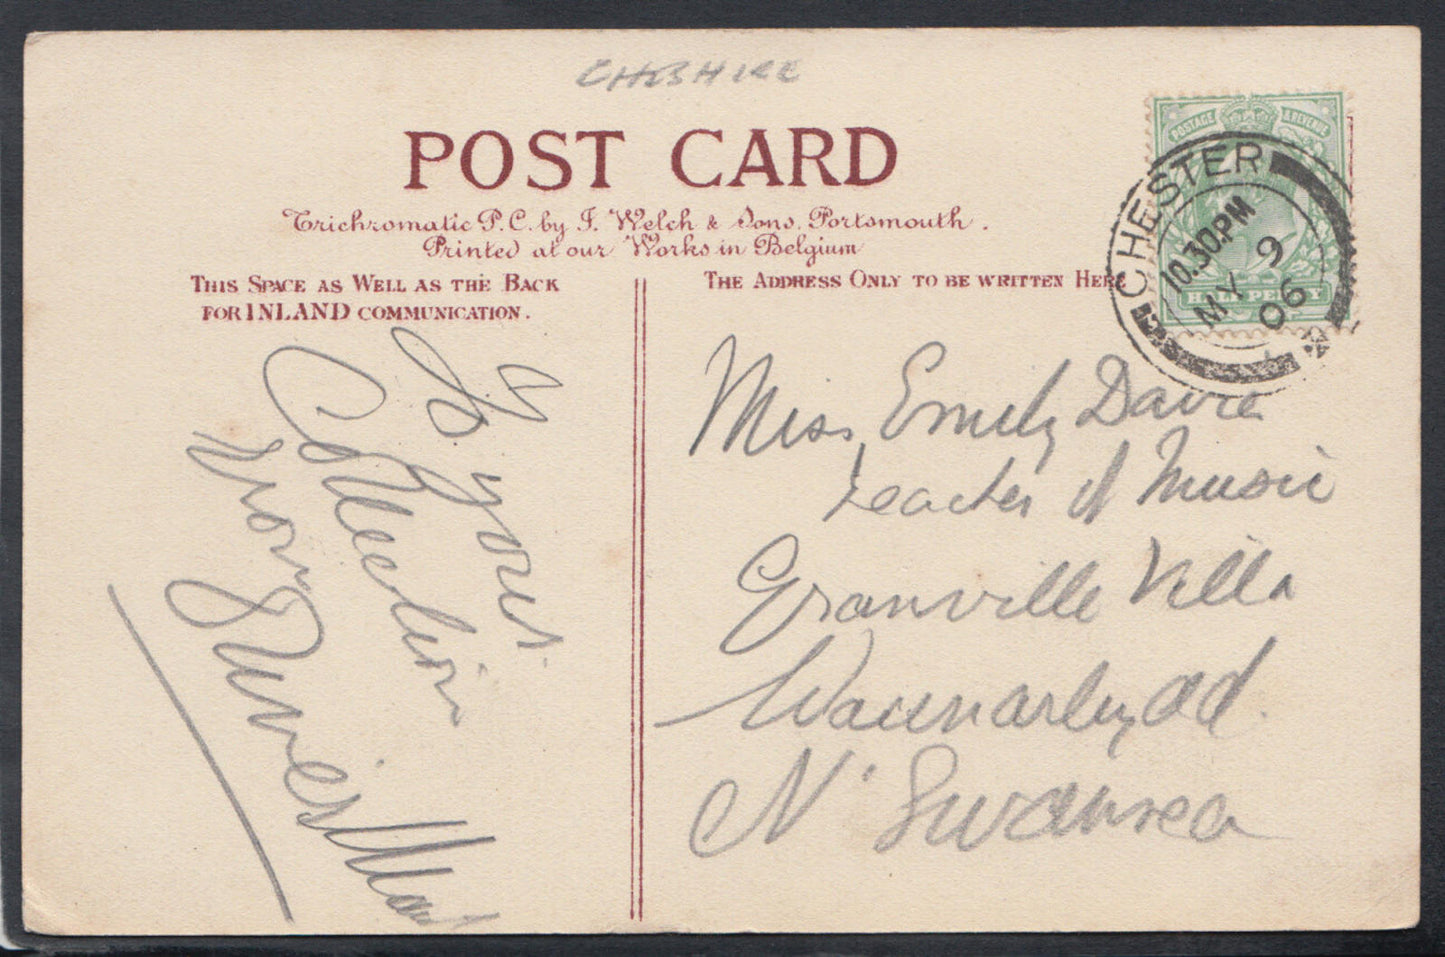 CHESHIRE
POST CARD
Trichromatic P.C. by F. Welch & Sons, Portsmouth.
Printed at our Works in Belgium
THIS SPACE AS WELL AS THE BACK
FOR INLAND COMMUNICATION.
THE ADDRESS ONLY TO BE WRITTEN HERE
POSTAGE & REVENUE
HALFPENNY
CHESTER
10.30.PM
MY 9
06
Miss Emily Davies
Teacher of Music
Granville Villa
Waunarlwydd
Nr Swansea
yours
Collection
from